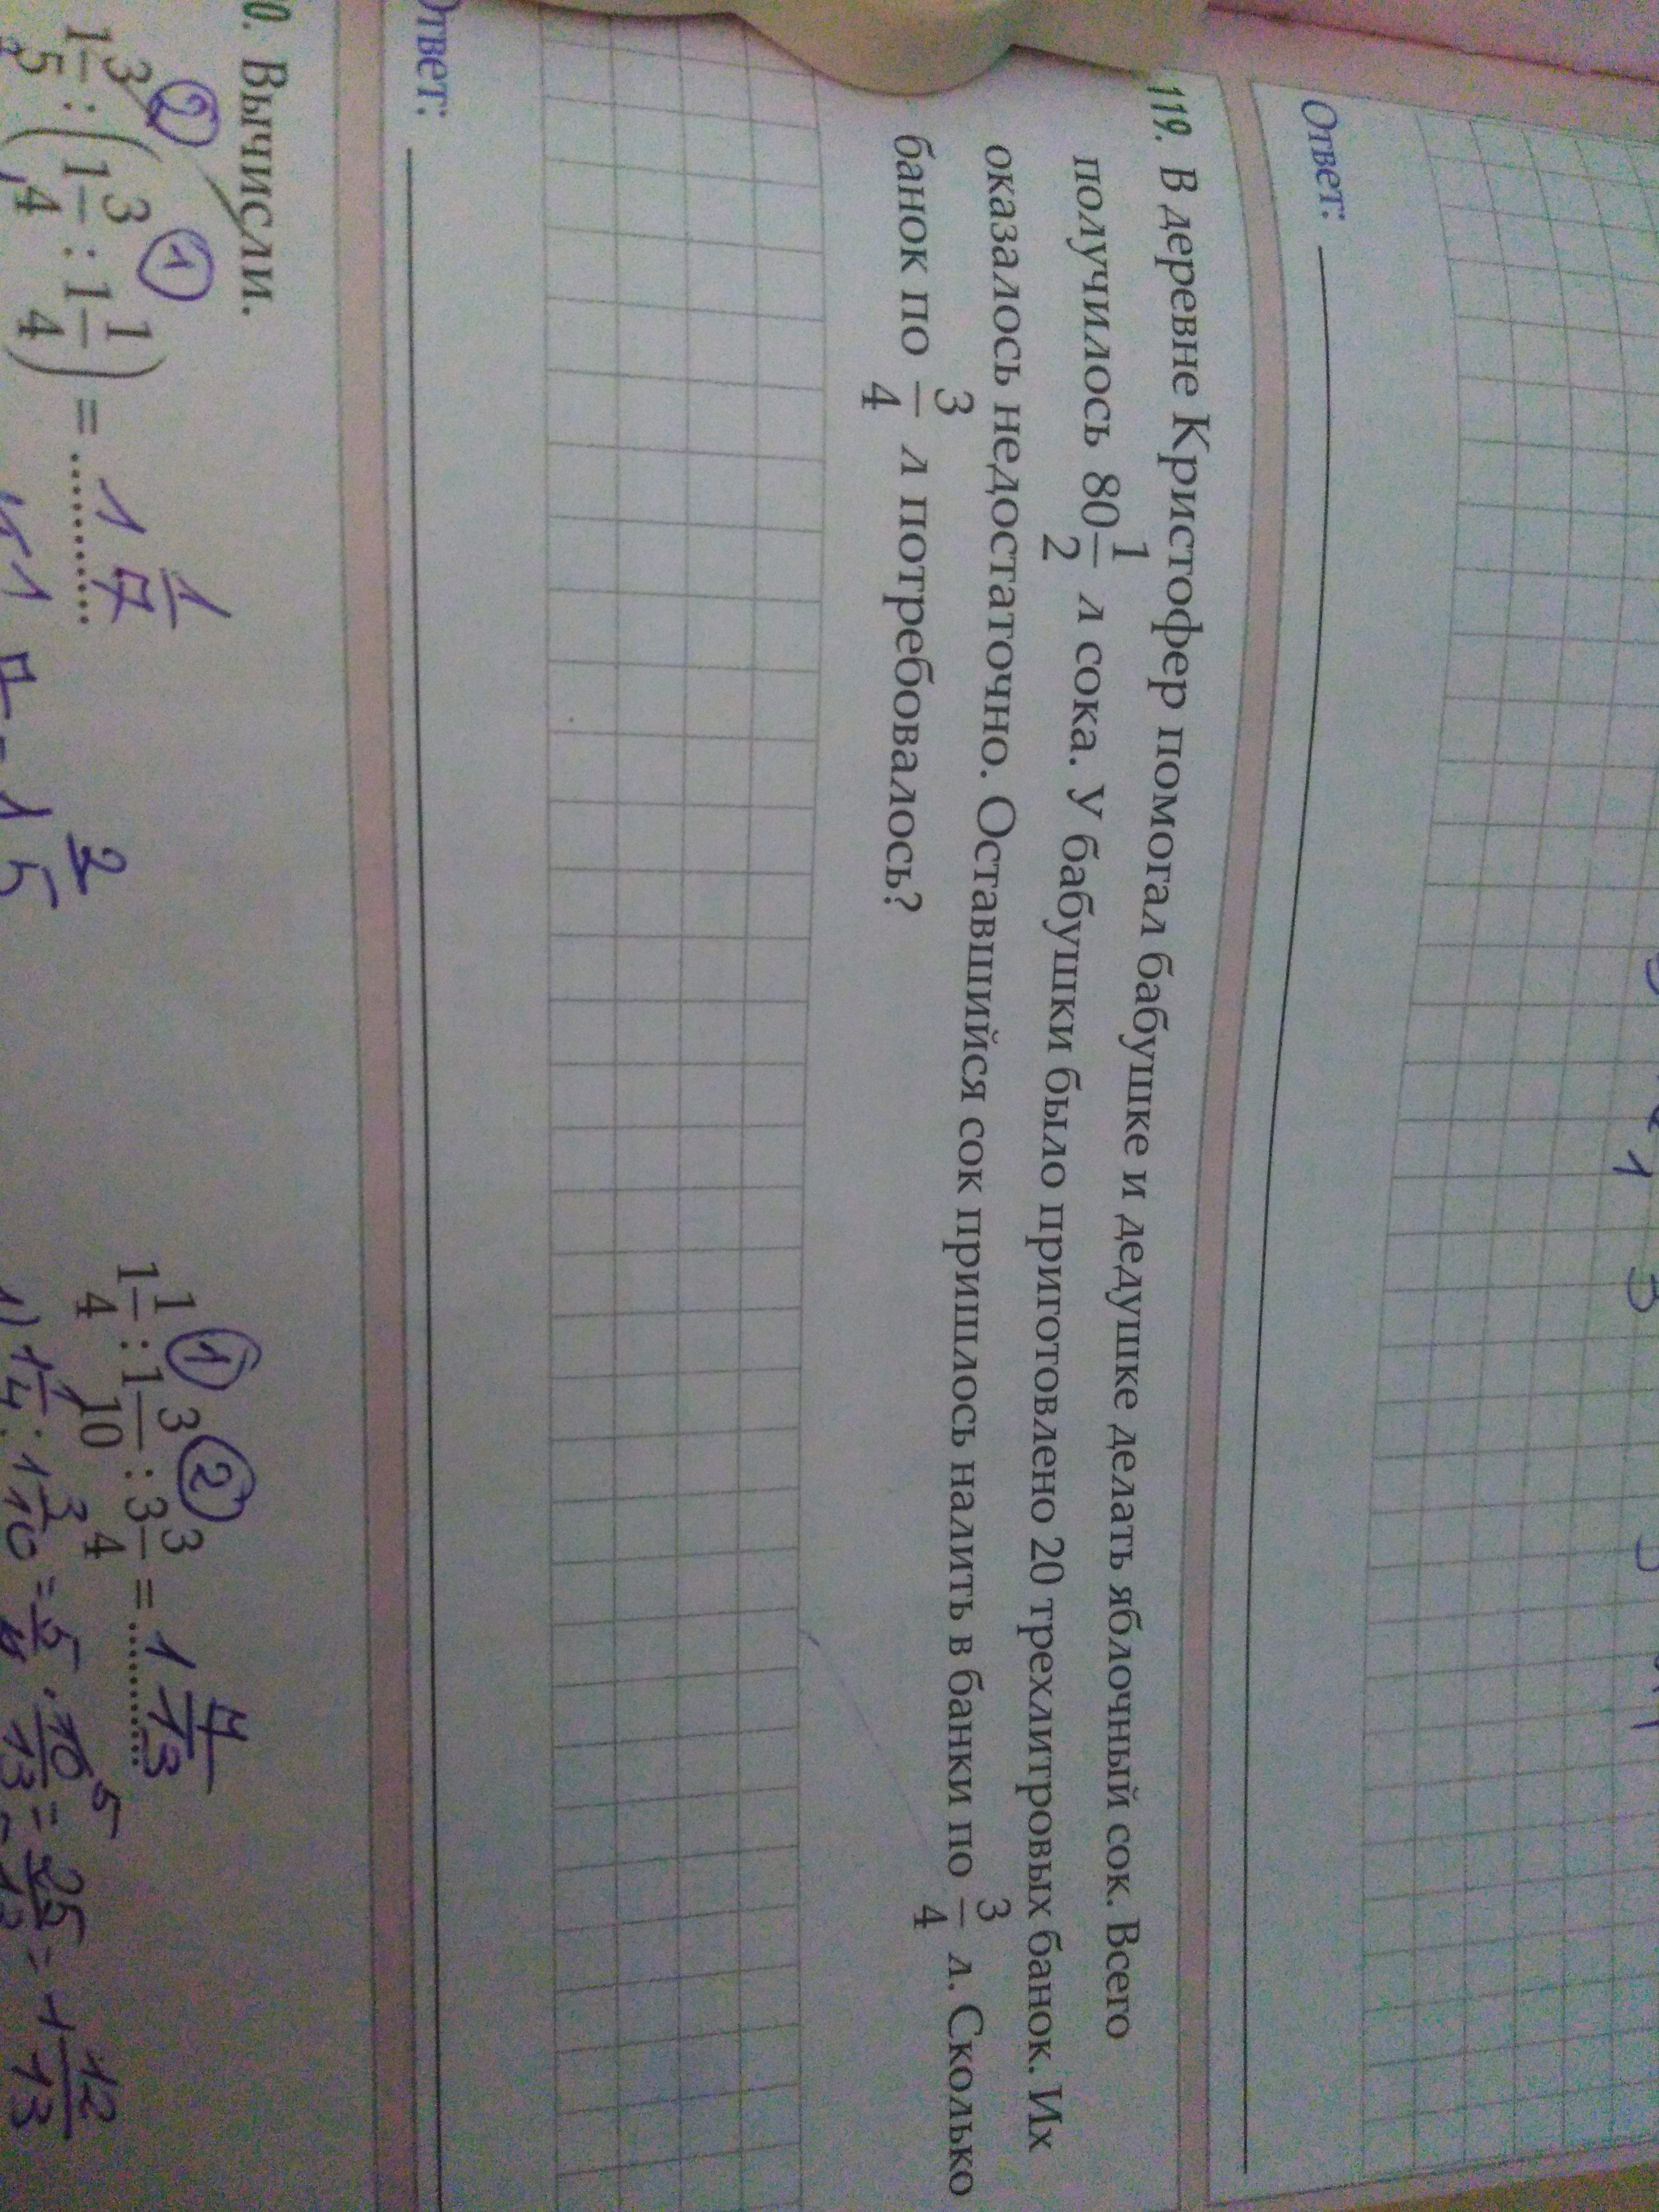 Ответ:
119. В деревне Кристофер помогал бабушке и дедушке делать яблочный сок. Всего
получилось 80 1/2 л сока. У бабушки было приготовлено 20 трехлитровых банок. Их
оказалось недостаточно. Оставшийся сок пришлось налить в банки по 3/4 л. Сколько
банок по 3/4 л потребовалось?
Ответ:
0. Вычисли.
② ① ① ②
1 3/5 : (1 3/4 : 1 1/4) = 1 1/7 1 1/4 : 1 3/10 : 3 3/4 = 1 4/13
2/5 1) 1 1/4 : 1 3/10 = 5/4 · 10/13 = 25 = 1 12/13